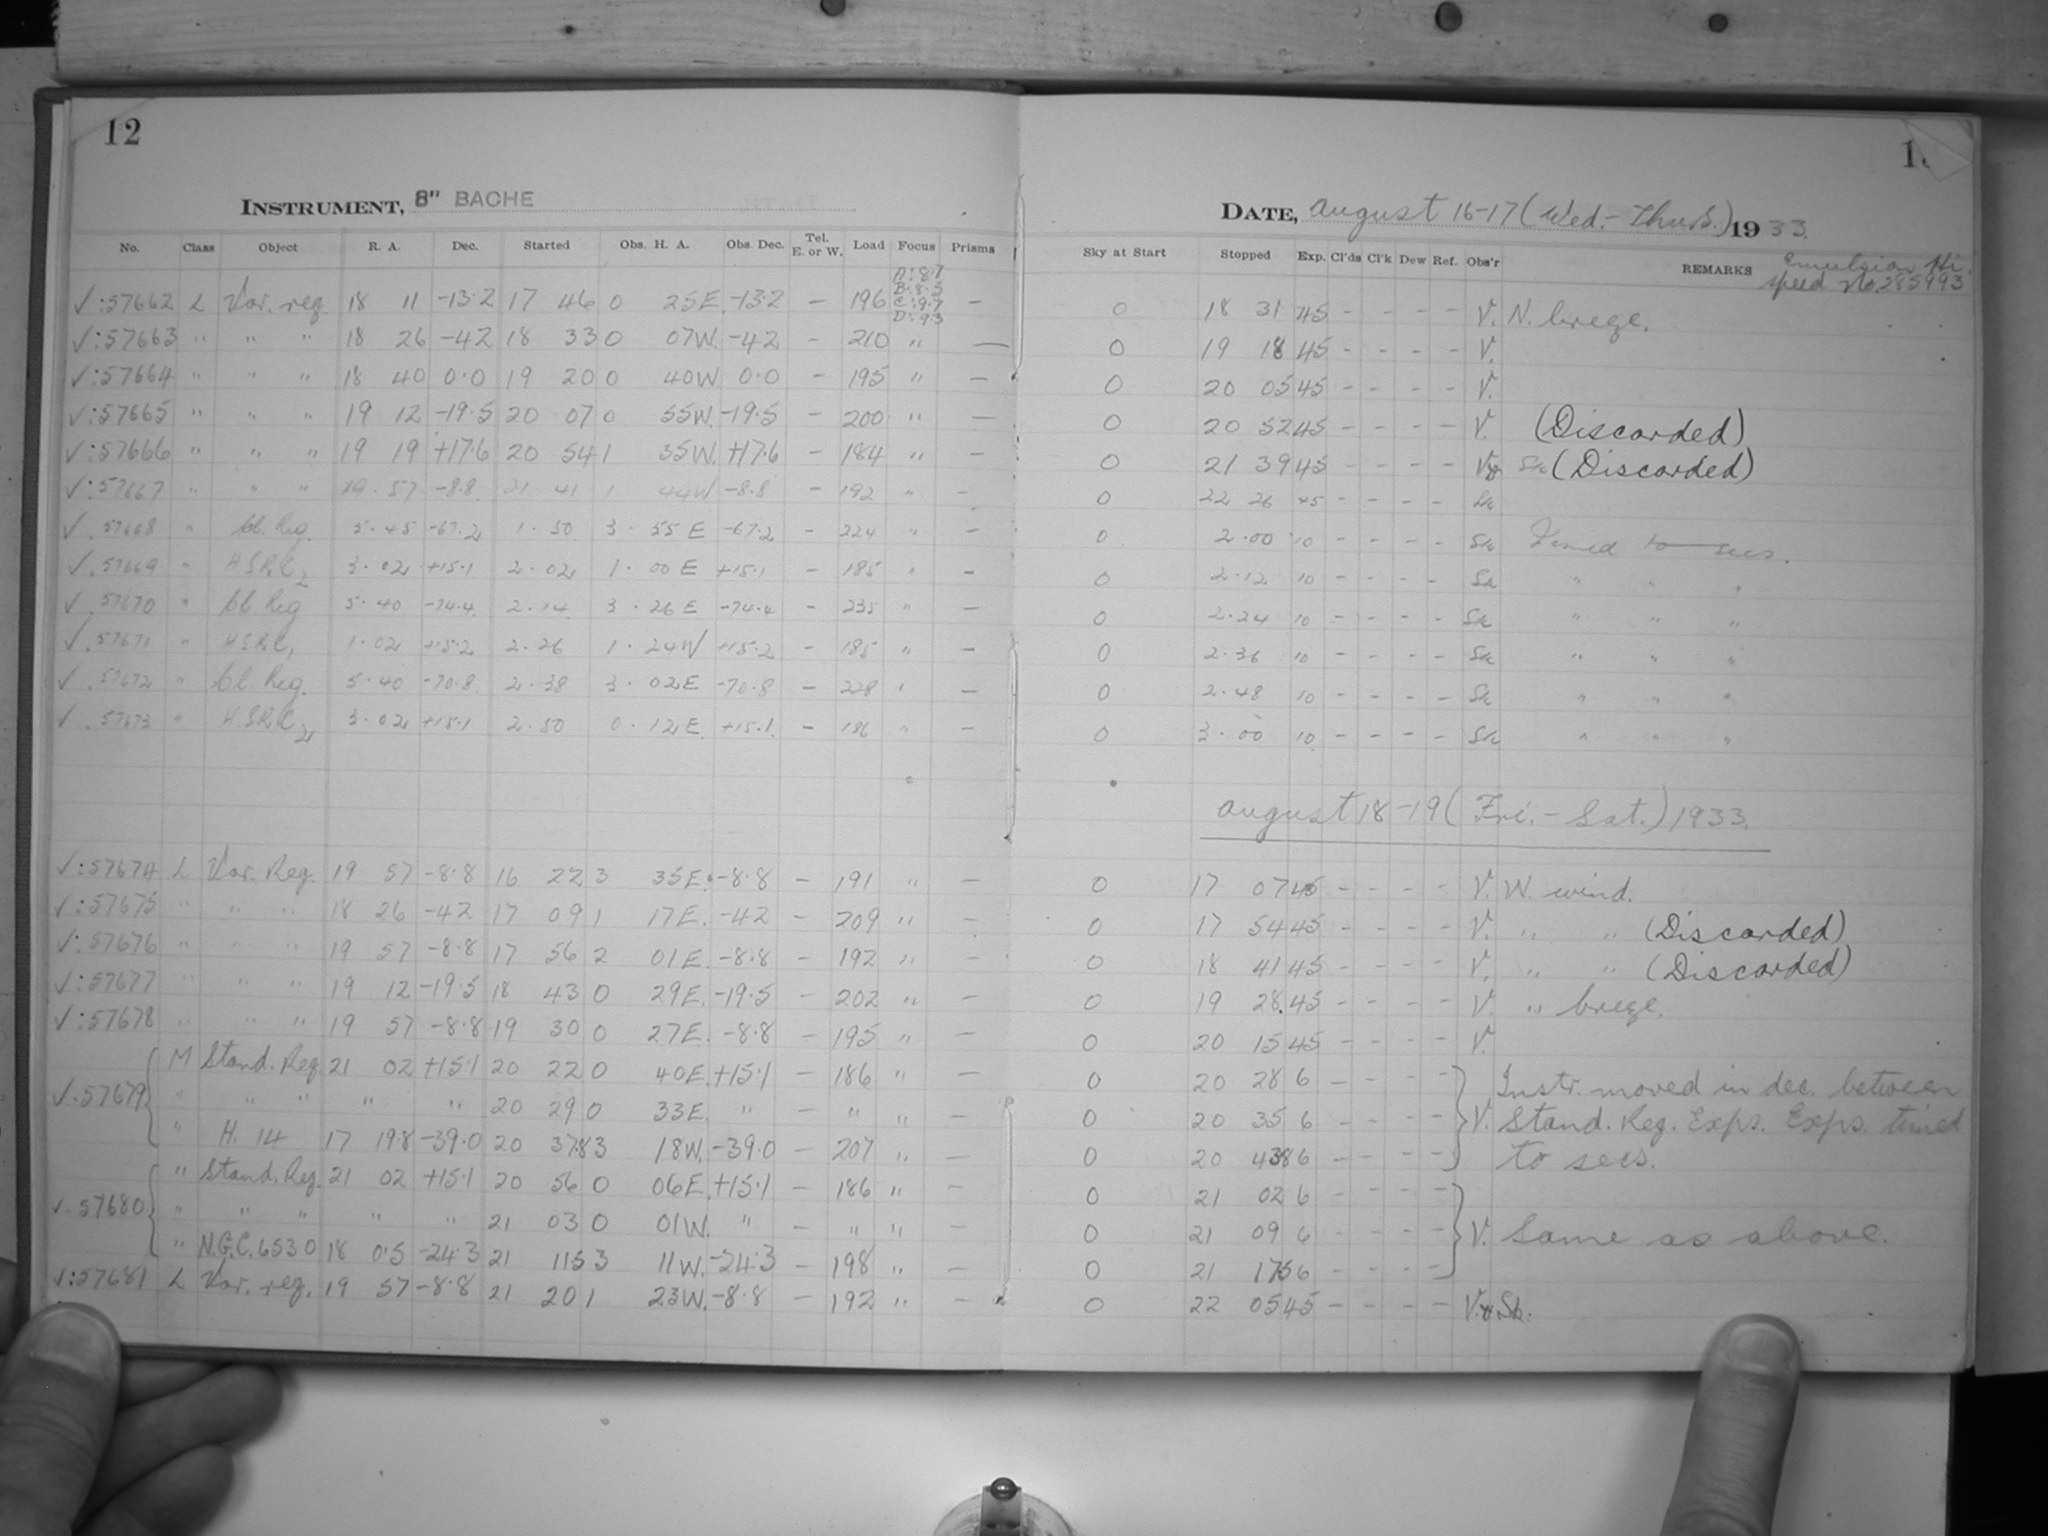 12
INSTRUMENT, 8" BACHE
No. Class Object R. A. Dec. Started Obs. H. A. Obs. Dec. Tel. E. or W. Load Focus Prisms
A:8.7
B:8.5
C:9.7
D:9.3
✓:57662 L Var. reg. 18 11 -13.2 17 46 0 25E. -13.2 – 196 –
✓:57663 " " " 18 26 -42 18 33 0 07W. -42 – 210 " –
✓:57664 " " " 18 40 0.0 19 20 0 40W. 0.0 – 195 " –
✓:57665 " " " 19 12 -19.5 20 07 0 55W. -19.5 – 200 " –
✓:57666 " " " 19 19 +17.6 20 54 1 35W. +17.6 – 184 " –
✓:57667 " " " 19.57 -8.8 21 41 1 44W -8.8 – 192 " –
✓.57668 " Cl. Reg. 5.45 -67.2 1.50 3.55 E -67.2 – 224 " –
✓.57669 " H.S.R.C2 3.02 +15.1 2.02 1.00 E +15.1 – 185 " –
✓.57670 " Cl. Reg 5.40 -74.4 2.14 3.26 E -74.4 – 235 " –
✓.57671 " H.S.R.C1 1.02 +15.2 2.26 1.24W +15.2 – 185 " –
✓.57672 " Cl. Reg. 5.40 -70.8 2.38 3.02E -70.8 – 228 " –
✓.57673 " H.S.R.C2 3.02 +15.1 2.50 0.12E. +15.1 – 186 " –
✓:57674 L Var. Reg. 19 57 -8.8 16 22 3 35E. -8.8 – 191 " –
✓:57675 " " " 18 26 -42 17 09 1 17E. -42 – 209 " –
✓:57676 " " " 19 57 -8.8 17 56 2 01E. -8.8 – 192 " –
✓:57677 " " " 19 12 -19.5 18 43 0 29E. -19.5 – 202 " –
✓:57678 " " " 19 57 -8.8 19 30 0 27E. -8.8 – 195 " –
M Stand. Reg. 21 02 +15.1 20 22 0 40E. +15.1 – 186 " –
✓.57679 " " " " " 20 29 0 33E. " – " " –
" H. 14 17 19.8 -39.0 20 37.8 3 18W. -39.0 – 207 " –
" Stand. Reg. 21 02 +15.1 20 56 0 06E. +15.1 – 186 " –
✓.57680 " " " " " 21 03 0 01W. " – " " –
" N.G.C. 6530 18 0.5 -24.3 21 11.5 3 11W. -24.3 – 198 " –
✓:57681 L Var. reg. 19 57 -8.8 21 20 1 23W. -8.8 – 192 " –
DATE, August 16-17 (Wed.-Thurs.) 1933.
Sky at Start Stopped Exp. Cl'ds Cl'k Dew Ref. Obs'r REMARKS Emulsion Hi.
speed No. 285993
0 18 31 45 – – – – V. N. breeze.
0 19 18 45 – – – – V.
0 20 05 45 – – – – V.
0 20 52 45 – – – – V. (Discarded)
0 21 39 45 – – – – V& Sk (Discarded)
0 22 26 45 – – – – Sk
0 2.00 10 – – – – Sk Timed to secs.
0 2.12 10 – – – – Sk " " "
0 2.24 10 – – – – Sk " " "
0 2.36 10 – – – – Sk " " "
0 2.48 10 – – – – Sk " " "
0 3.00 10 – – – – Sk " " "
August 18-19 (Fri.-Sat.) 1933.
0 17 07 45 – – – – V. W. wind.
0 17 54 45 – – – – V. " " (Discarded)
0 18 41 45 – – – – V. " " (Discarded)
0 19 28 45 – – – – V. " breeze.
0 20 15 45 – – – – V.
0 20 28 6 – – – – Instr. moved in dec. between
0 20 35 6 – – – – V. Stand. Reg. Exps. Exps. timed
0 20 43.8 6 – – – – to secs.
0 21 02 6 – – – –
0 21 09 6 – – – – V. Same as above.
0 21 17.5 6 – – – –
0 22 05 45 – – – – V.&Sk.